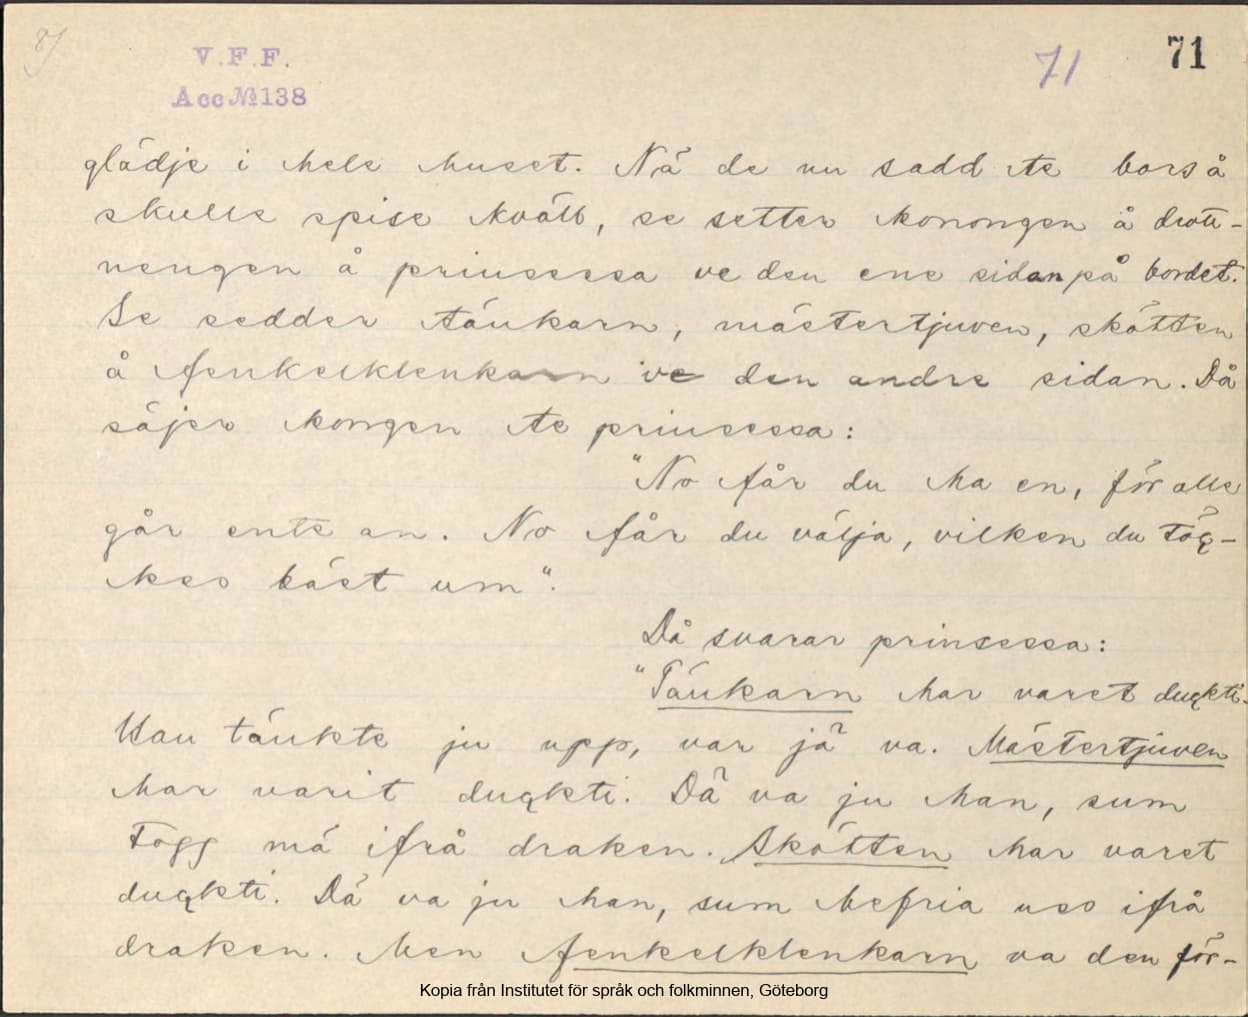 87
V.F.F.
Acc № 138
71
71
glädje i hele huset. Nä de nu sadd te bors å
skulle spise kväll, se setter konongen å drott-
nengen å prinsessa ve den ene sidan på bordet.
Se sedder täukarn, mästertjuven, skötten
å fenkelklenkarn ve den andre sidan. Då
säjer kongen te prinsessa:
"No får du ha en, för alle
går ente an. No får du välja, vilken du töq-
kes bäst um".
Då svarar prinsessa:
"Täukarn har varet duqkti.
Han täukte ju upp, var jä va. Mästertjuven
har varit duqkti. Dä va ju han, sum
togg mä ifrå draken. Skötten har varet
duqkti. Dä va ju han, sum befria uss ifrå
draken. Men fenkelklenkarn va den för-
Kopia från Institutet för språk och folkminnen, Göteborg